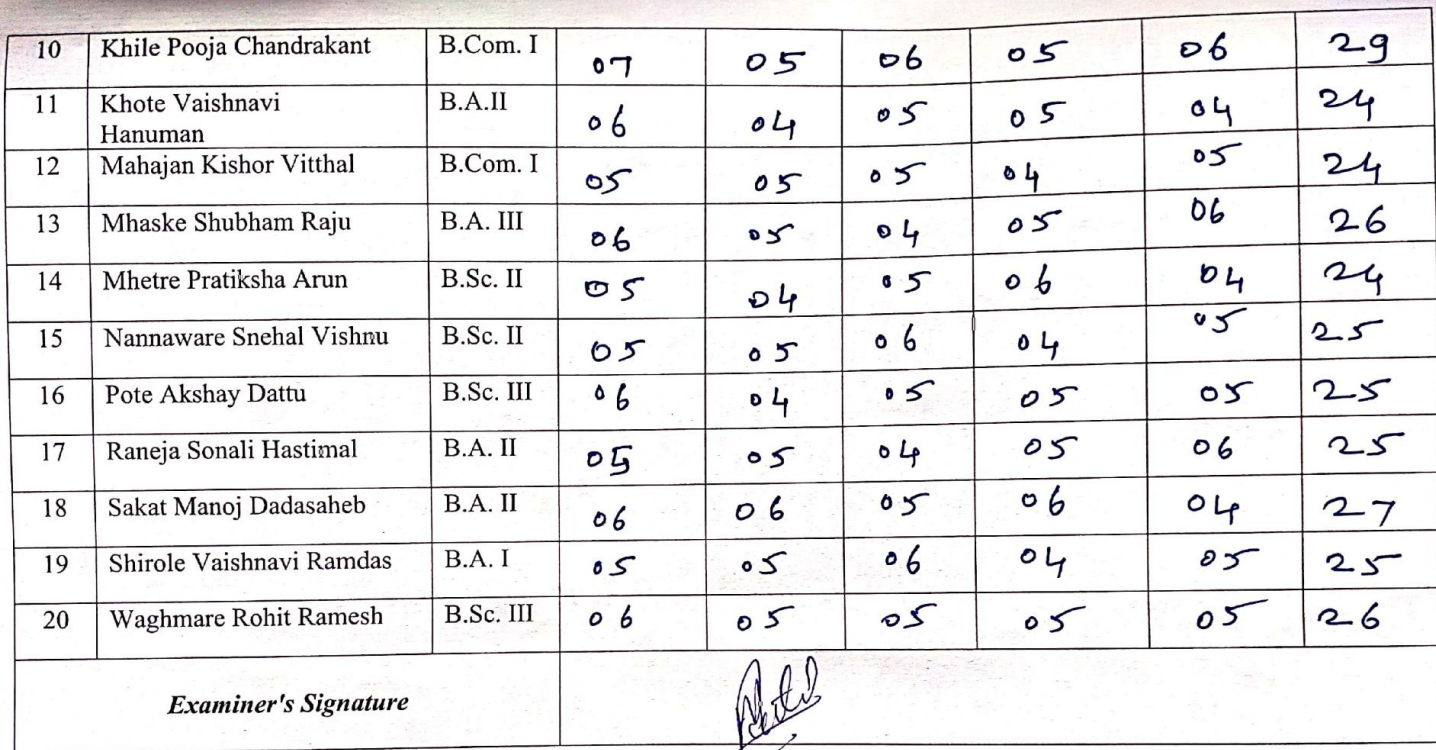 10 Khile Pooja Chandrakant B.Com. I 07 05 06 05 06 29
11 Khote Vaishnavi B.A.II 06 04 05 05 04 24
Hanuman
12 Mahajan Kishor Vitthal B.Com. I 05 05 05 04 05 24
13 Mhaske Shubham Raju B.A. III 06 05 04 05 06 26
14 Mhetre Pratiksha Arun B.Sc. II 05 04 05 06 04 24
15 Nannaware Snehal Vishnu B.Sc. II 05 05 06 04 05 25
16 Pote Akshay Dattu B.Sc. III 06 04 05 05 05 25
17 Raneja Sonali Hastimal B.A. II 05 05 04 05 06 25
18 Sakat Manoj Dadasaheb B.A. II 06 06 05 06 04 27
19 Shirole Vaishnavi Ramdas B.A. I 05 05 06 04 05 25
20 Waghmare Rohit Ramesh B.Sc. III 06 05 05 05 05 26
Examiner's Signature